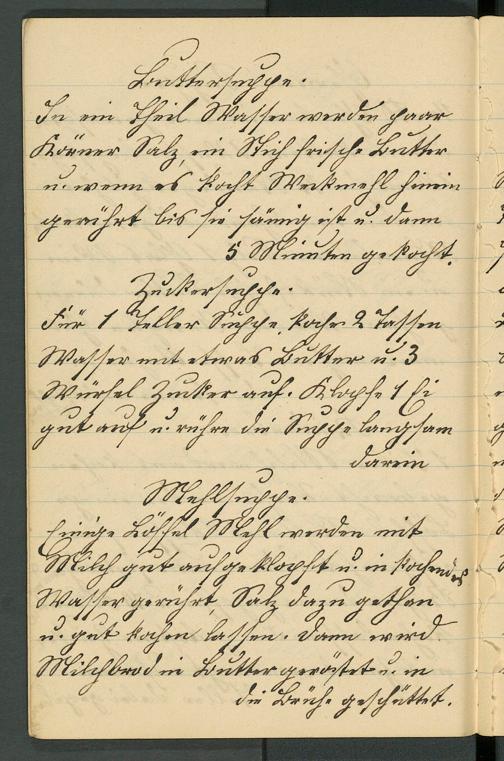 Buttersuppe.
In ein Theil Wasser werden paar
Körner Salz, ein Stich frische Butter
u. wenn es kocht Weckmehl hinein
gerührt bis sie sämig ist u. dann
5 Minuten gekocht.
Zuckersuppe.
Für 1 Teller Suppe, koche 2 Tassen
Wasser mit etwas Butter u. 3
Würfel Zucker auf. Klopfe 1 Ei
gut auf u. rühre die Suppe langsam
darein
Mehlsuppe.
Einige Löffel Mehl werden mit
Milch gut aufgeklopft u. in kochendes
Wasser gerührt, Salz dazu gethan
u. gut kochen lassen. Dann wird
Milchbrod in Butter geröstet u. in
die Brühe geschüttet.